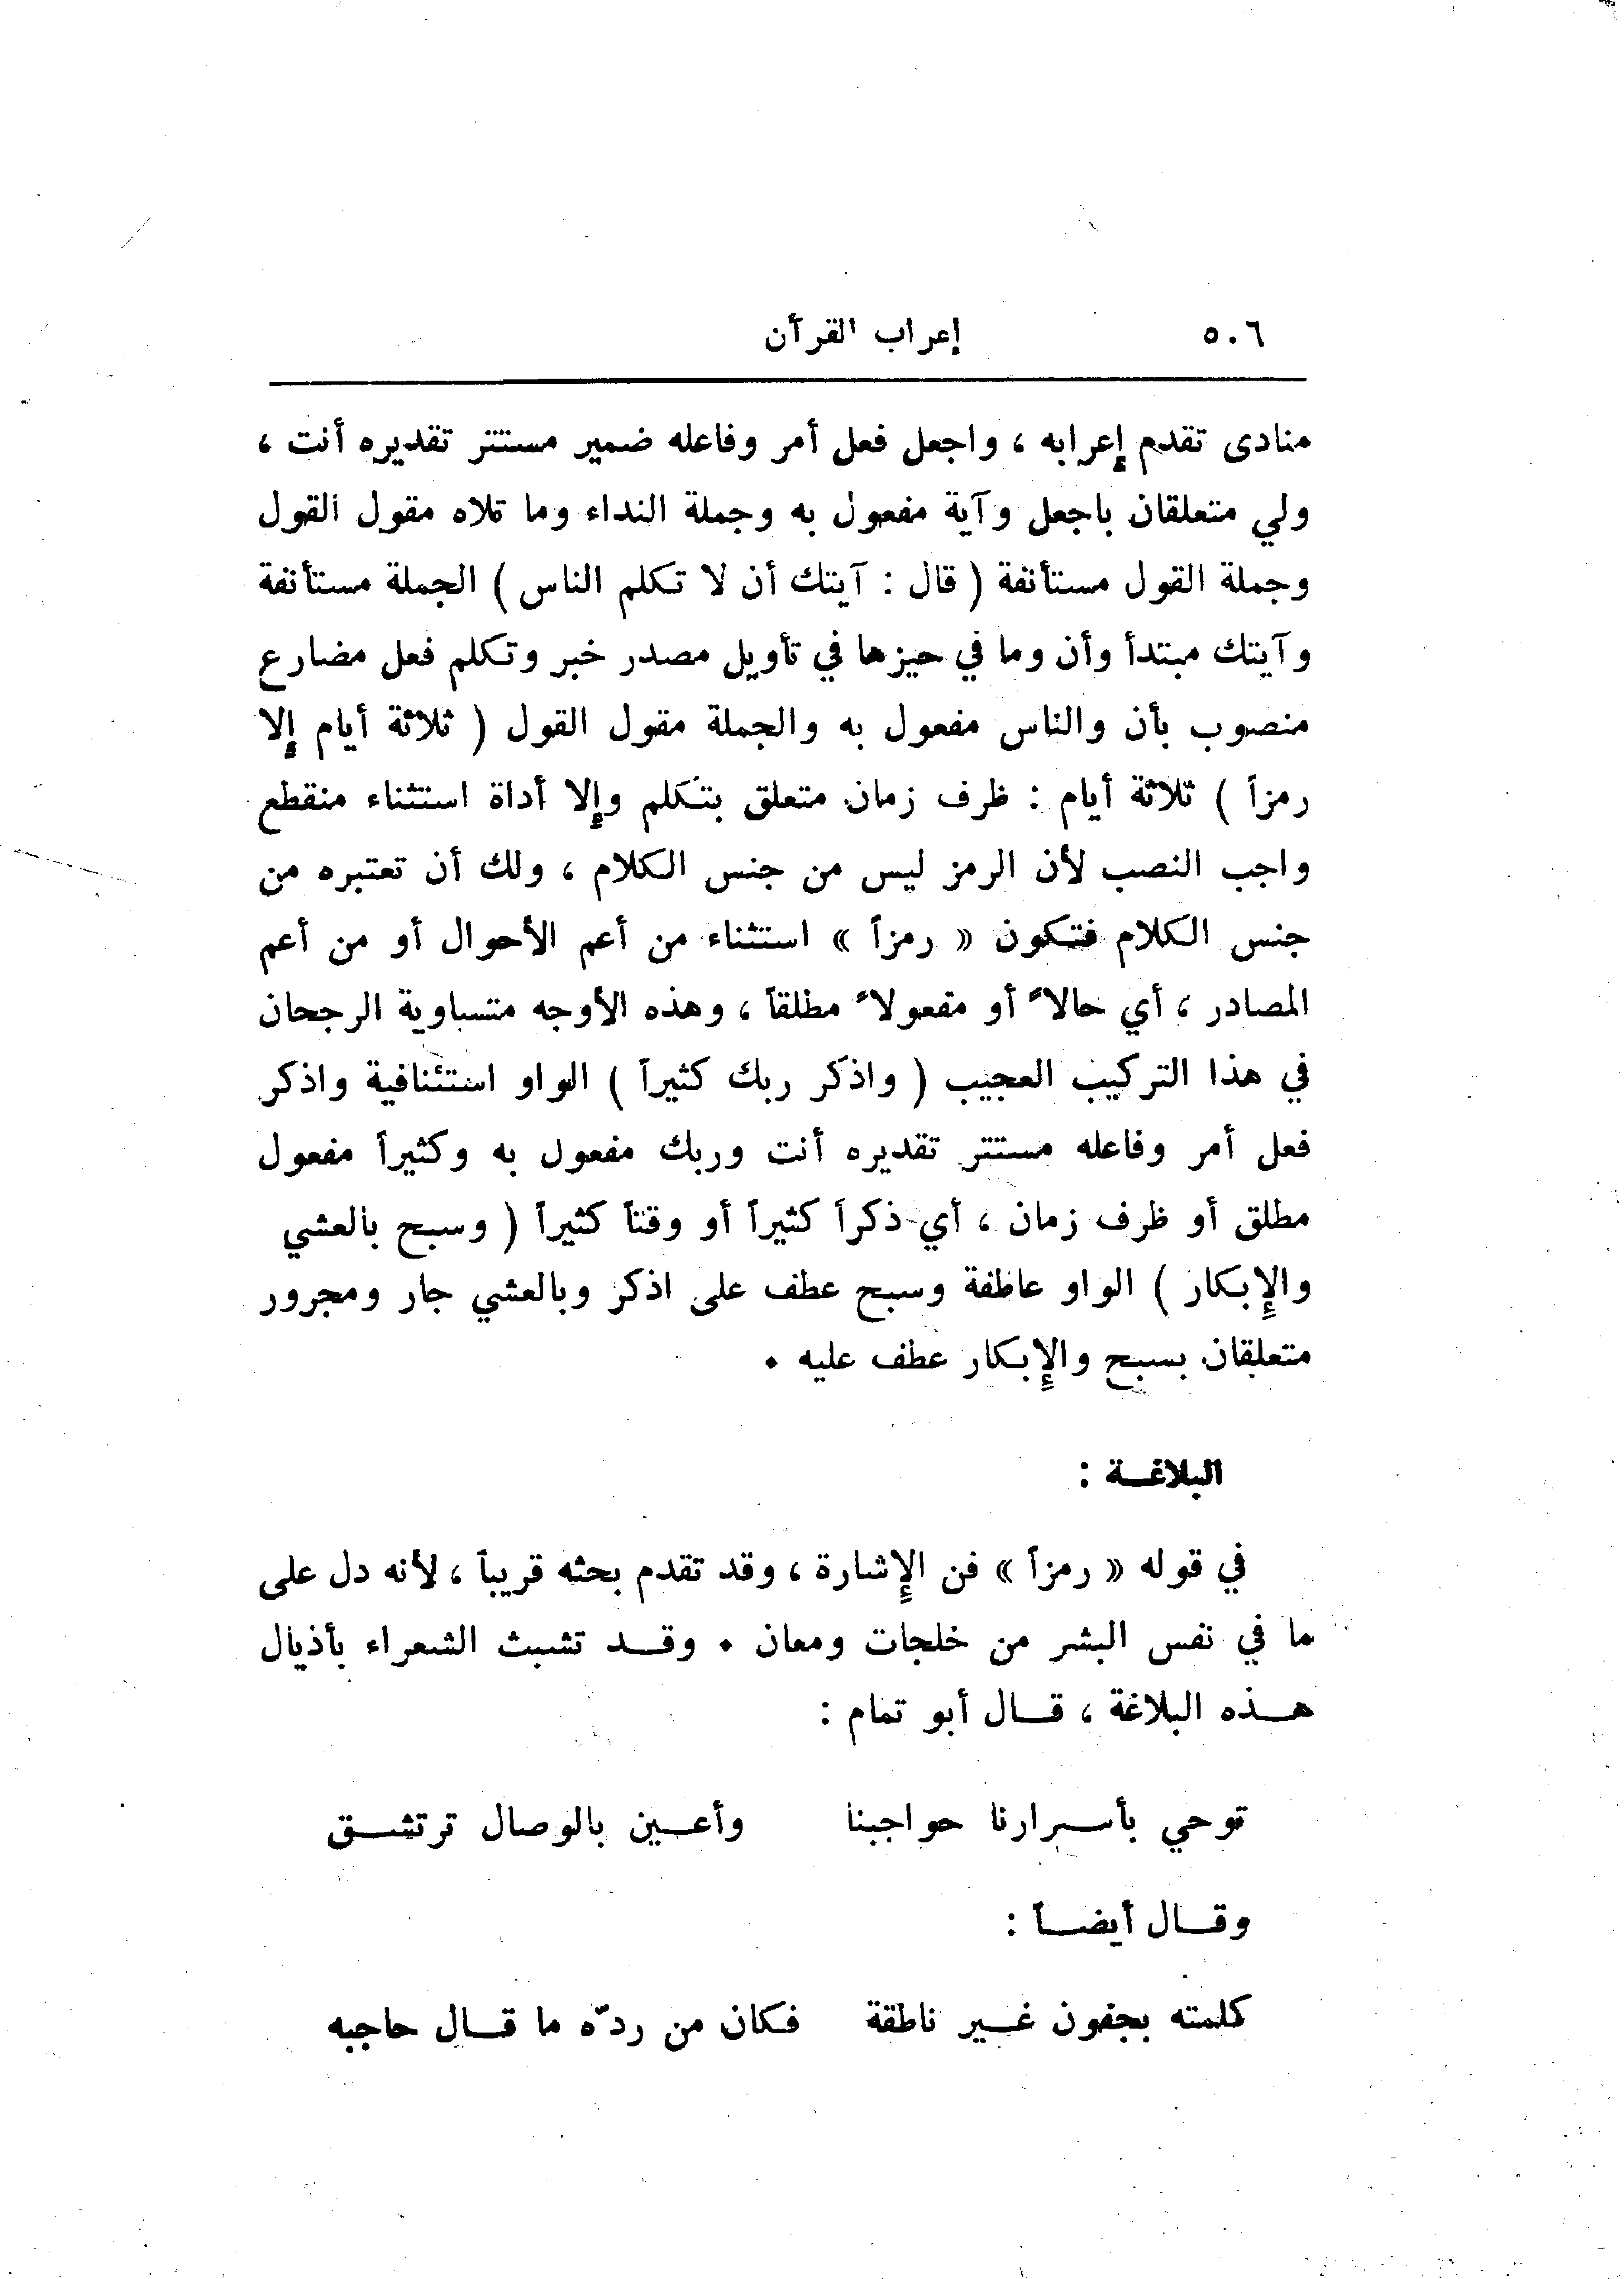 ٥٠٦ إعراب القرآن
منادى تقدم إعرابه ، واجعل فعل أمر وفاعله ضمير مستتر تقديره أنت ،
ولي متعلقان باجعل وآية مفعول به وجملة النداء وما تلاه مقول القول
وجملة القول مستأنفة ( قال : آيتك أن لا تكلم الناس ) الجملة مستأنفة
وآيتك مبتدأ وأن وما في حيزها في تأويل مصدر خبر وتكلم فعل مضارع
منصوب بأن والناس مفعول به والجملة مقول القول ( ثلاثة أيام إلا
رمزاً ) ثلاثة أيام : ظرف زمان متعلق بتكلم وإلا أداة استثناء منقطع
واجب النصب لأن الرمز ليس من جنس الكلام ، ولك أن تعتبره من
جنس الكلام فتكون « رمزاً » استثناء من أعم الأحوال أو من أعم
المصادر ، أي حالاً أو مفعولاً مطلقاً ، وهذه الأوجه متساوية الرجحان
في هذا التركيب العجيب ( واذكر ربك كثيراً ) الواو استئنافية واذكر
فعل أمر وفاعله مستتر تقديره أنت وربك مفعول به وكثيراً مفعول
مطلق أو ظرف زمان ، أي ذكراً كثيراً أو وقتاً كثيراً ( وسبح بالعشي
والإبكار ) الواو عاطفة وسبح عطف على اذكر وبالعشي جار ومجرور
متعلقان بسبح والإبكار عطف عليه .
البلاغــة :
في قوله « رمزاً » فن الإشارة ، وقد تقدم بحثه قريباً ، لأنه دل على
ما في نفس البشر من خلجات ومعان . وقــد تشبث الشعراء بأذيال
هــذه البلاغة ، قــال أبو تمام :
توحي بأســرارنا حواجبنا وأعــين بالوصال ترتشــق
وقــال أيضــاً :
كلمته بجفون غــير ناطقة فكان من ردّه ما قــال حاجبه